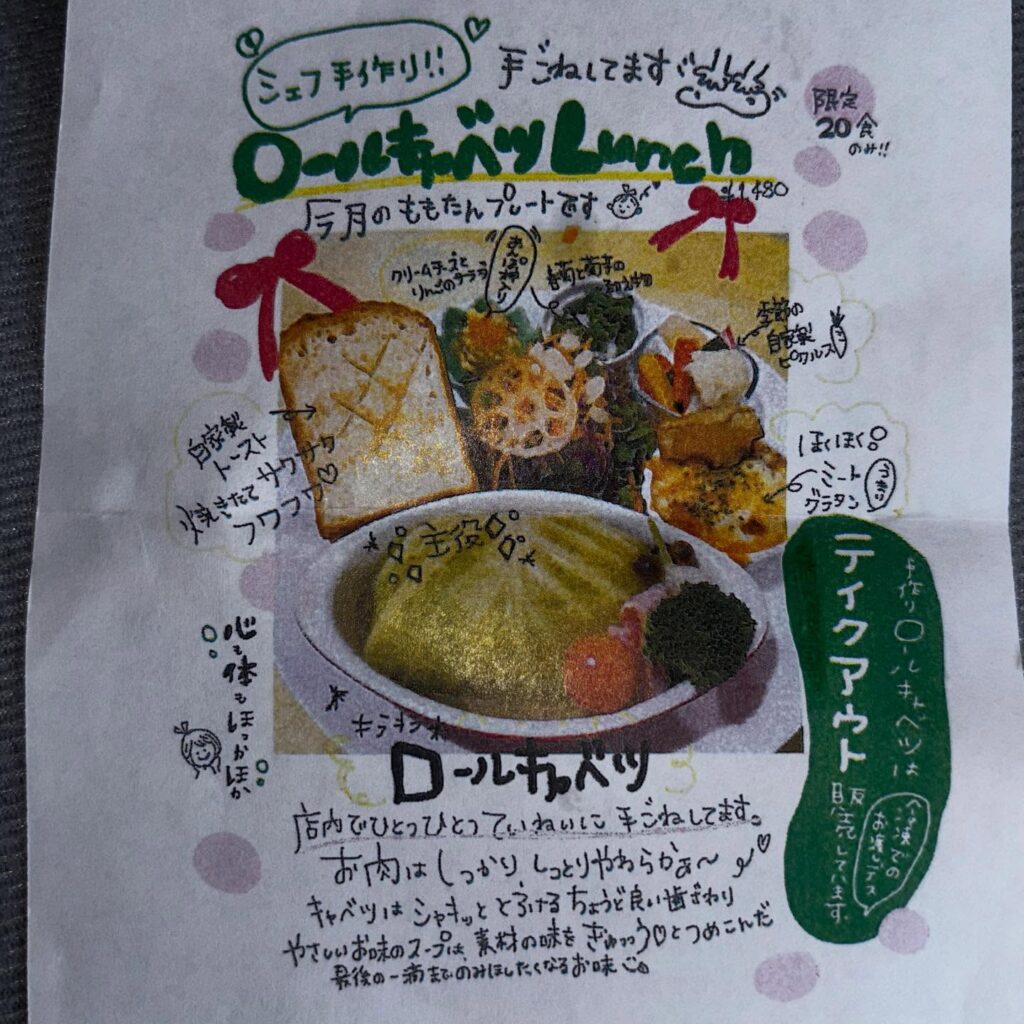 シェフ手作り!!
手ごねしてます
限定
20食
のみ!!
ロールキャベツLunch
¥1,480
今月のももたんプレートです
クリームチーズと
りんごのサラダ
あんぽ柿入り
春菊と菊芋の
和え物
季節の
自家製
ピクルス
自家製
トースト
焼きたてサクサク
フワフワ♡
ほくほく
ミート
グラタン
主役
心も体もぽっかぽか
キラキラ
ロールキャベツ
手作りロールキャベツは
テイクアウト
販売しています。
冷凍での
お渡しデス
店内でひとつひとつていねいに手ごねしてます。
お肉はしっかり、しっとりやわらかぁ〜♡
キャベツはシャキッととろけるちょうど良い歯ざわり
やさしいお味のスープは、素材の味をぎゅっっう♡とつめこんだ
最後の一滴までのみほしたくなるお味